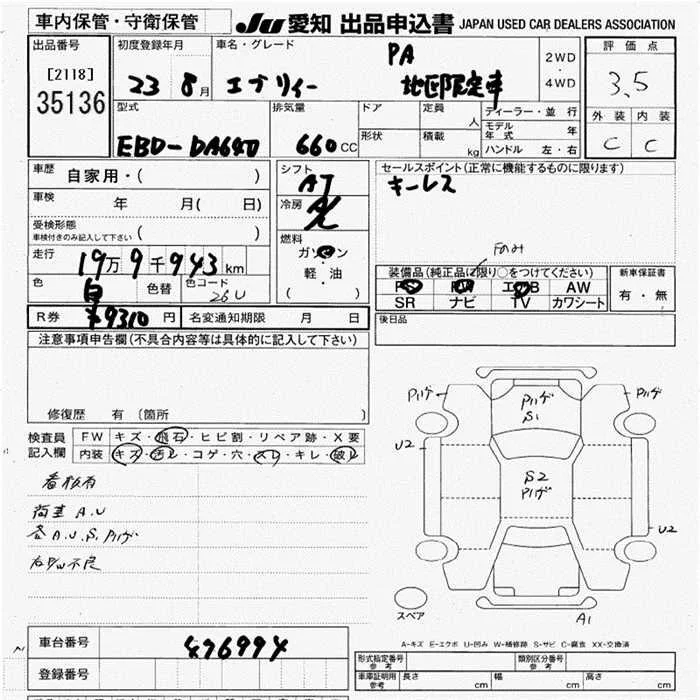 車内保管・守衛保管 JU 愛知 出品申込書 JAPAN USED CAR DEALERS ASSOCIATION
出品番号
[2118]
35136
初度登録年月
23 8月
車名・グレード
エブリィー
PA
地区限定車
2WD
4WD
評価点
3.5
外装 内装
C C
型式
EBD-DA64V
排気量
660cc
ドア
形状
定員
人
積載
kg
ディーラー・並行
モデル年式 年
ハンドル 左・右
車歴 自家用・( )
車検 年 月( 日)
受検形態
車検付きのみ記入して下さい ( )
走行 19万9千943km
色 白 色替 色コード 26U
R券 ¥9310円 名変通知期限 月 日
シフト
AT
冷房
A/C
燃料
ガソリン
・
軽・油
( )
セールスポイント(正常に機能するものに限ります)
キーレス
Fのみ
装備品(純正品に限り○をつけてください)
PS PW エアB AW
SR ナビ TV カワシート
新車保証書
有・無
後日品
注意事項申告欄(不具合内容等は具体的に記入して下さい)
修復歴 有 (箇所 )
検査員記入欄
FW キズ・飛石・ヒビ割・リペア跡・X要
内装 キズ・汚レ・コゲ・穴・スレ・キレ・破レ
看板有
荷室 A.U
各A.U.S.Pハゲ
右P/W不良
Pハゲ
Pハゲ
S1
Pハゲ
U2
S2
Pハゲ
U2
A1
スペア
A-キズ E-エクボ U-凹み W-補修跡 S-サビ C-腐食 XX-交換済
車台番号
登録番号
形式指定番号
参考
類別区分番号
参考
車庫証明用
参考
長さ cm 幅 cm 高さ cm